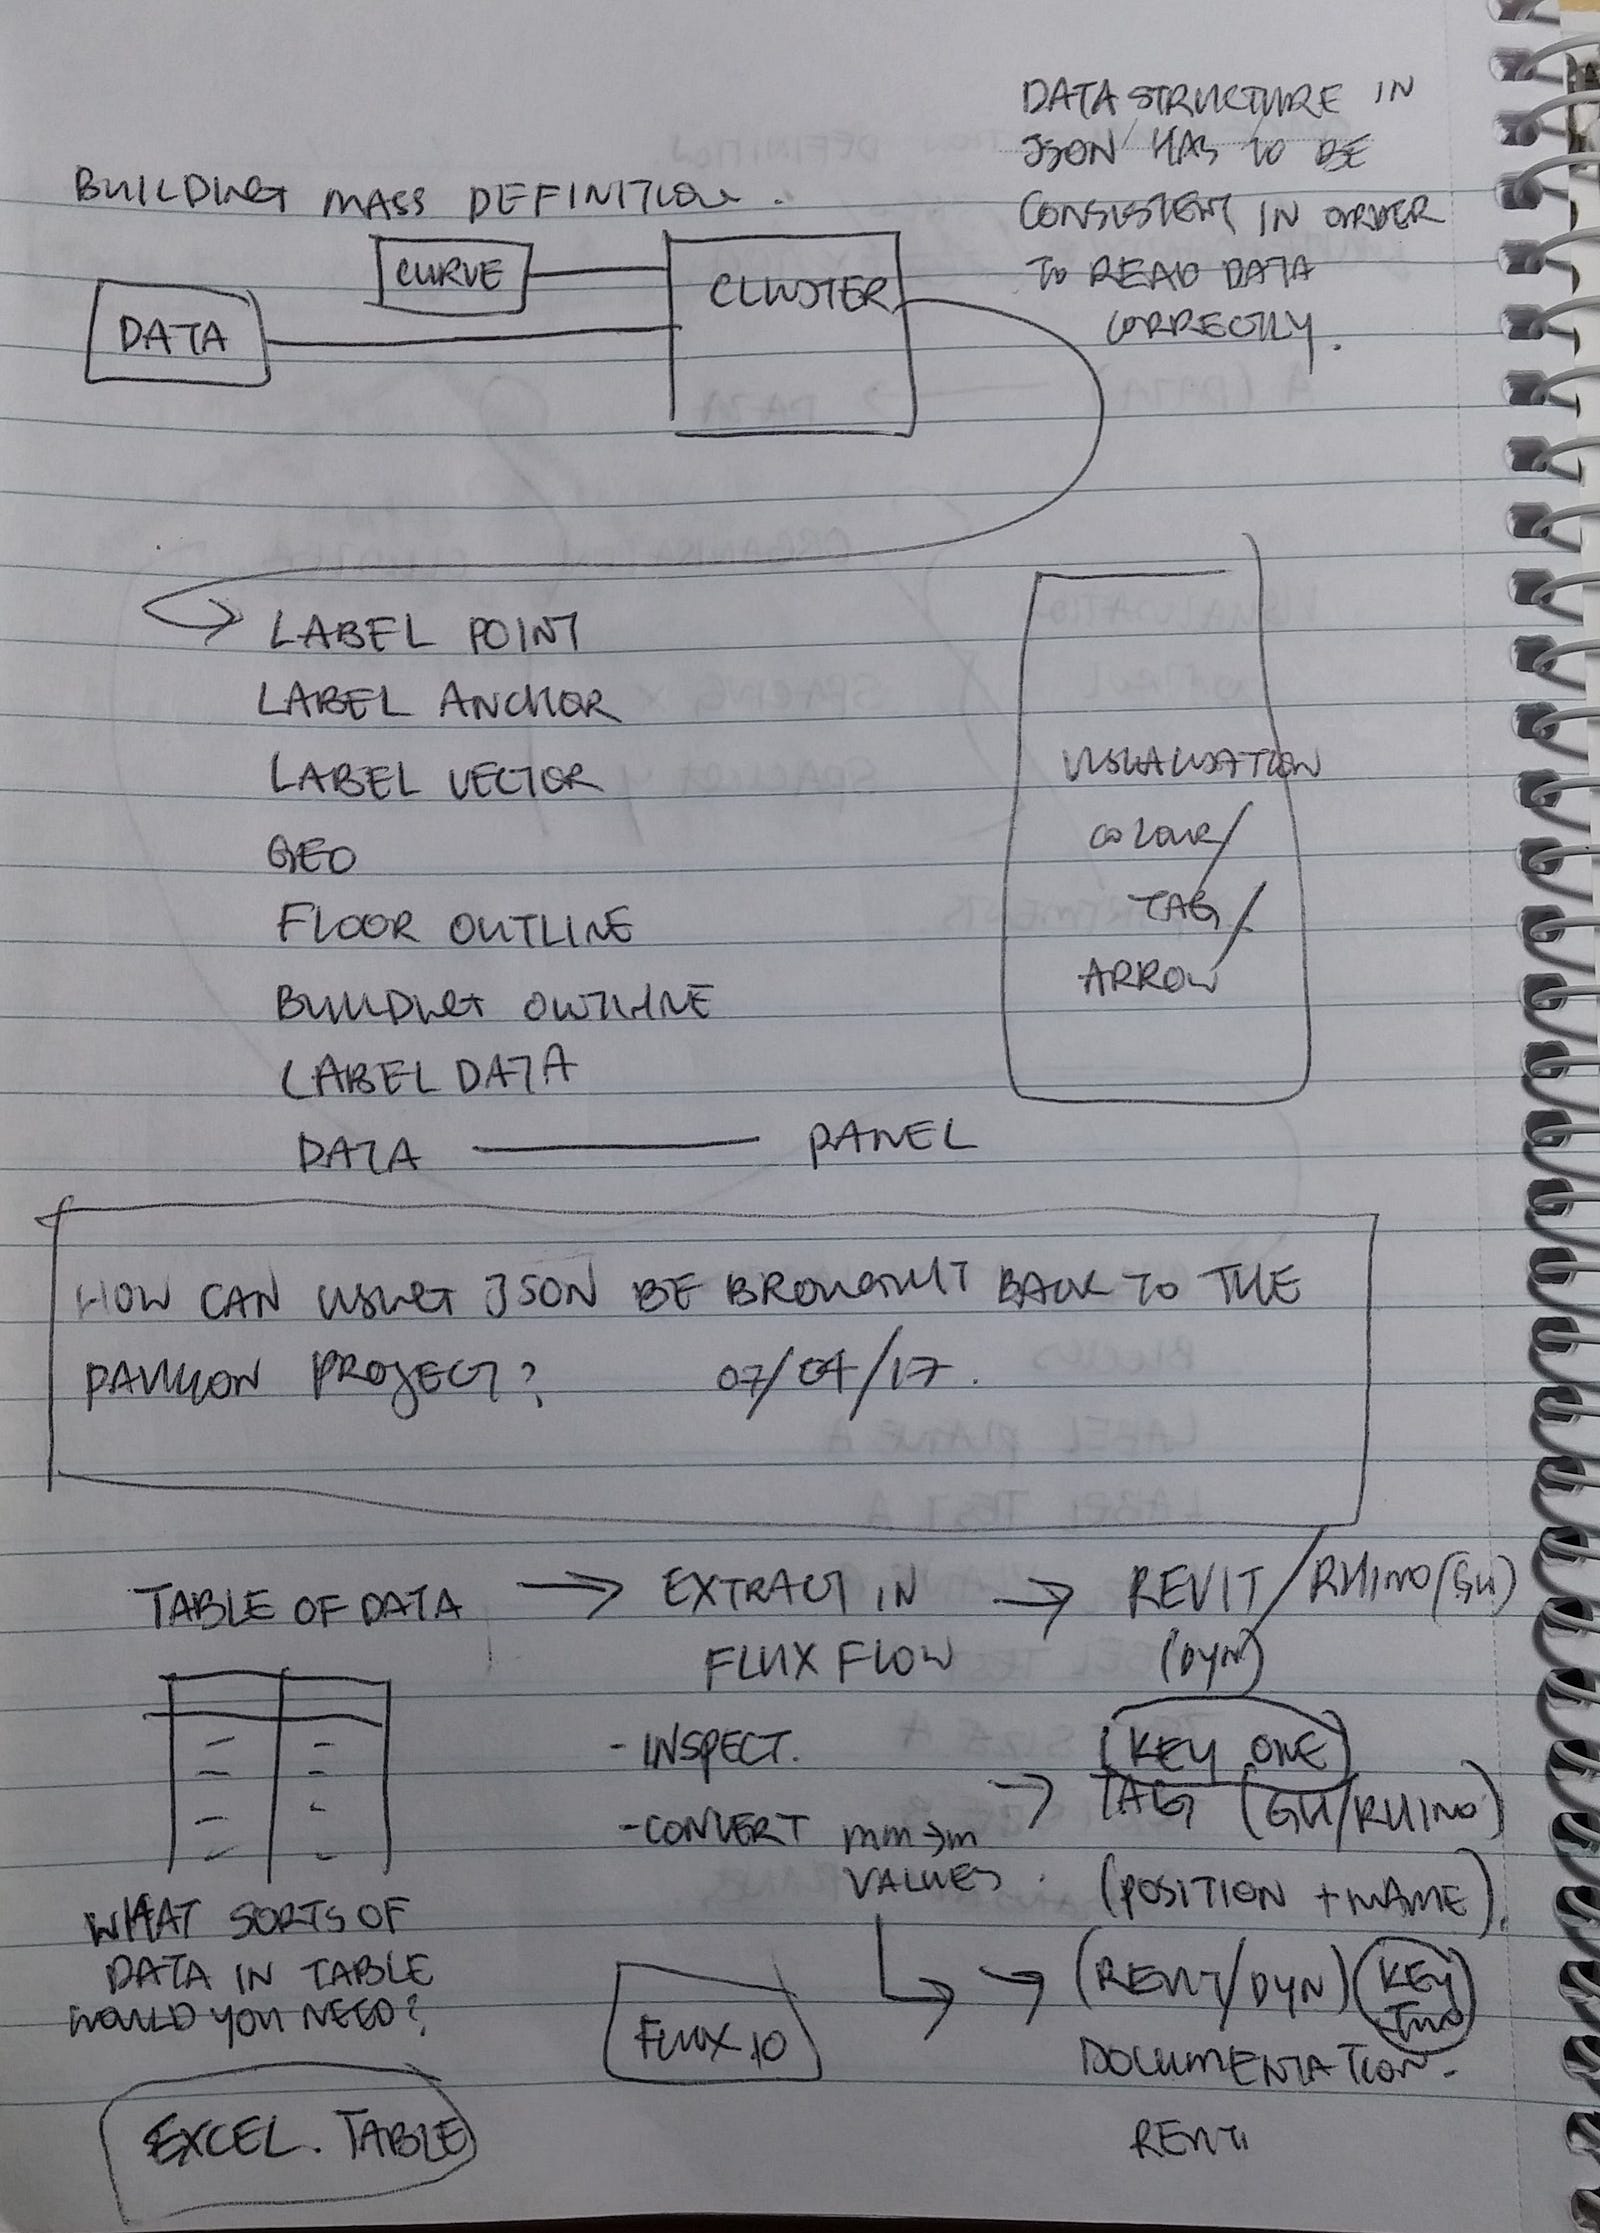 DATA STRUCTURE IN
JSON HAS TO BE
CONSISTENT IN ORDER
TO READ DATA
CORRECTLY.
BUILDING MASS DEFINITION.
CURVE
CLUSTER
DATA
LABEL POINT
LABEL ANCHOR
LABEL VECTOR
GEO
FLOOR OUTLINE
BUILDING OUTLINE
LABEL DATA
DATA — PANEL
VISUALISATION
COLOUR/
TAG/
ARROW
HOW CAN USING JSON BE BROUGHT BACK TO THE
PAVILION PROJECT? 07/04/17.
TABLE OF DATA → EXTRACT IN → REVIT / RHINO (GH)
FLUX FLOW (DYN)
- INSPECT.
- CONVERT mm→m
VALUES.
(KEY ONE)
→ TAG (GH/RHINO)
(POSITION + NAME).
→ (REVIT/DYN) KEY
TWO
DOCUMENTATION.
REVIT
WHAT SORTS OF
DATA IN TABLE
WOULD YOU NEED?
FLUX IO
EXCEL. TABLE